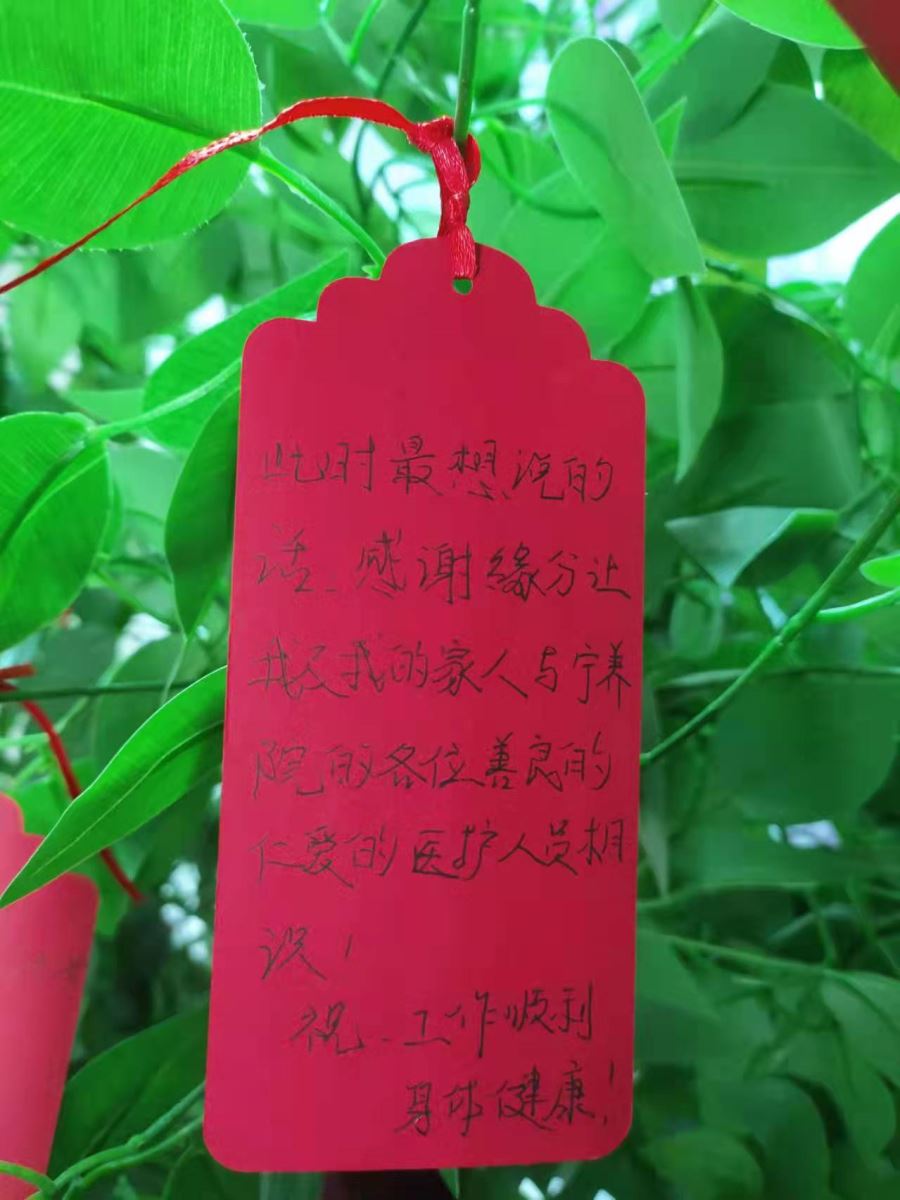 此时最想说的
话、感谢缘分让
我及我的家人与宁养
院的各位善良的
仁爱的医护人员相
识！
祝、工作顺利
身体健康！